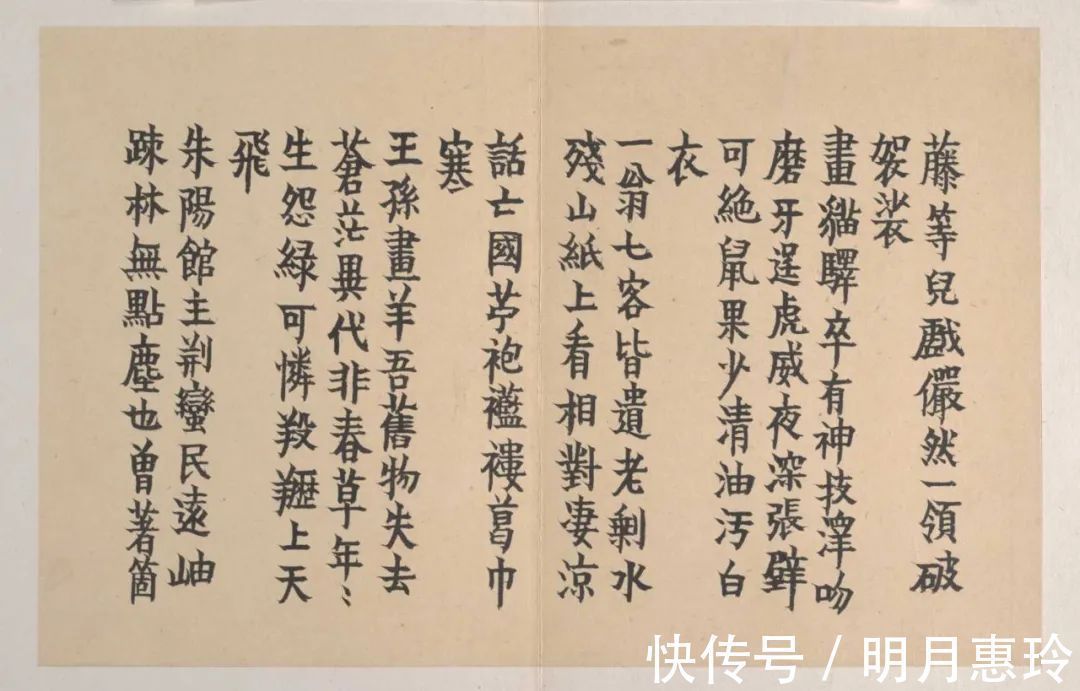 藤等兒戲儼然一領破
袈裟
畫貓驛卒有神技渾吻
磨牙逞虎威夜深張壁
可絶鼠果少清油汚白
衣
一翁七客皆遺老剩水
殘山紙上看相對凄涼
話亡國苧袍襤褸葛巾
寒
王孫畫羊吾舊物失去
蒼茫異代非春草年〻
生怨緑可憐羖䍽上天
飛
朱陽館主荆蠻民遠岫
疎林無點塵也曾著箇
快传号 / 明月惠玲